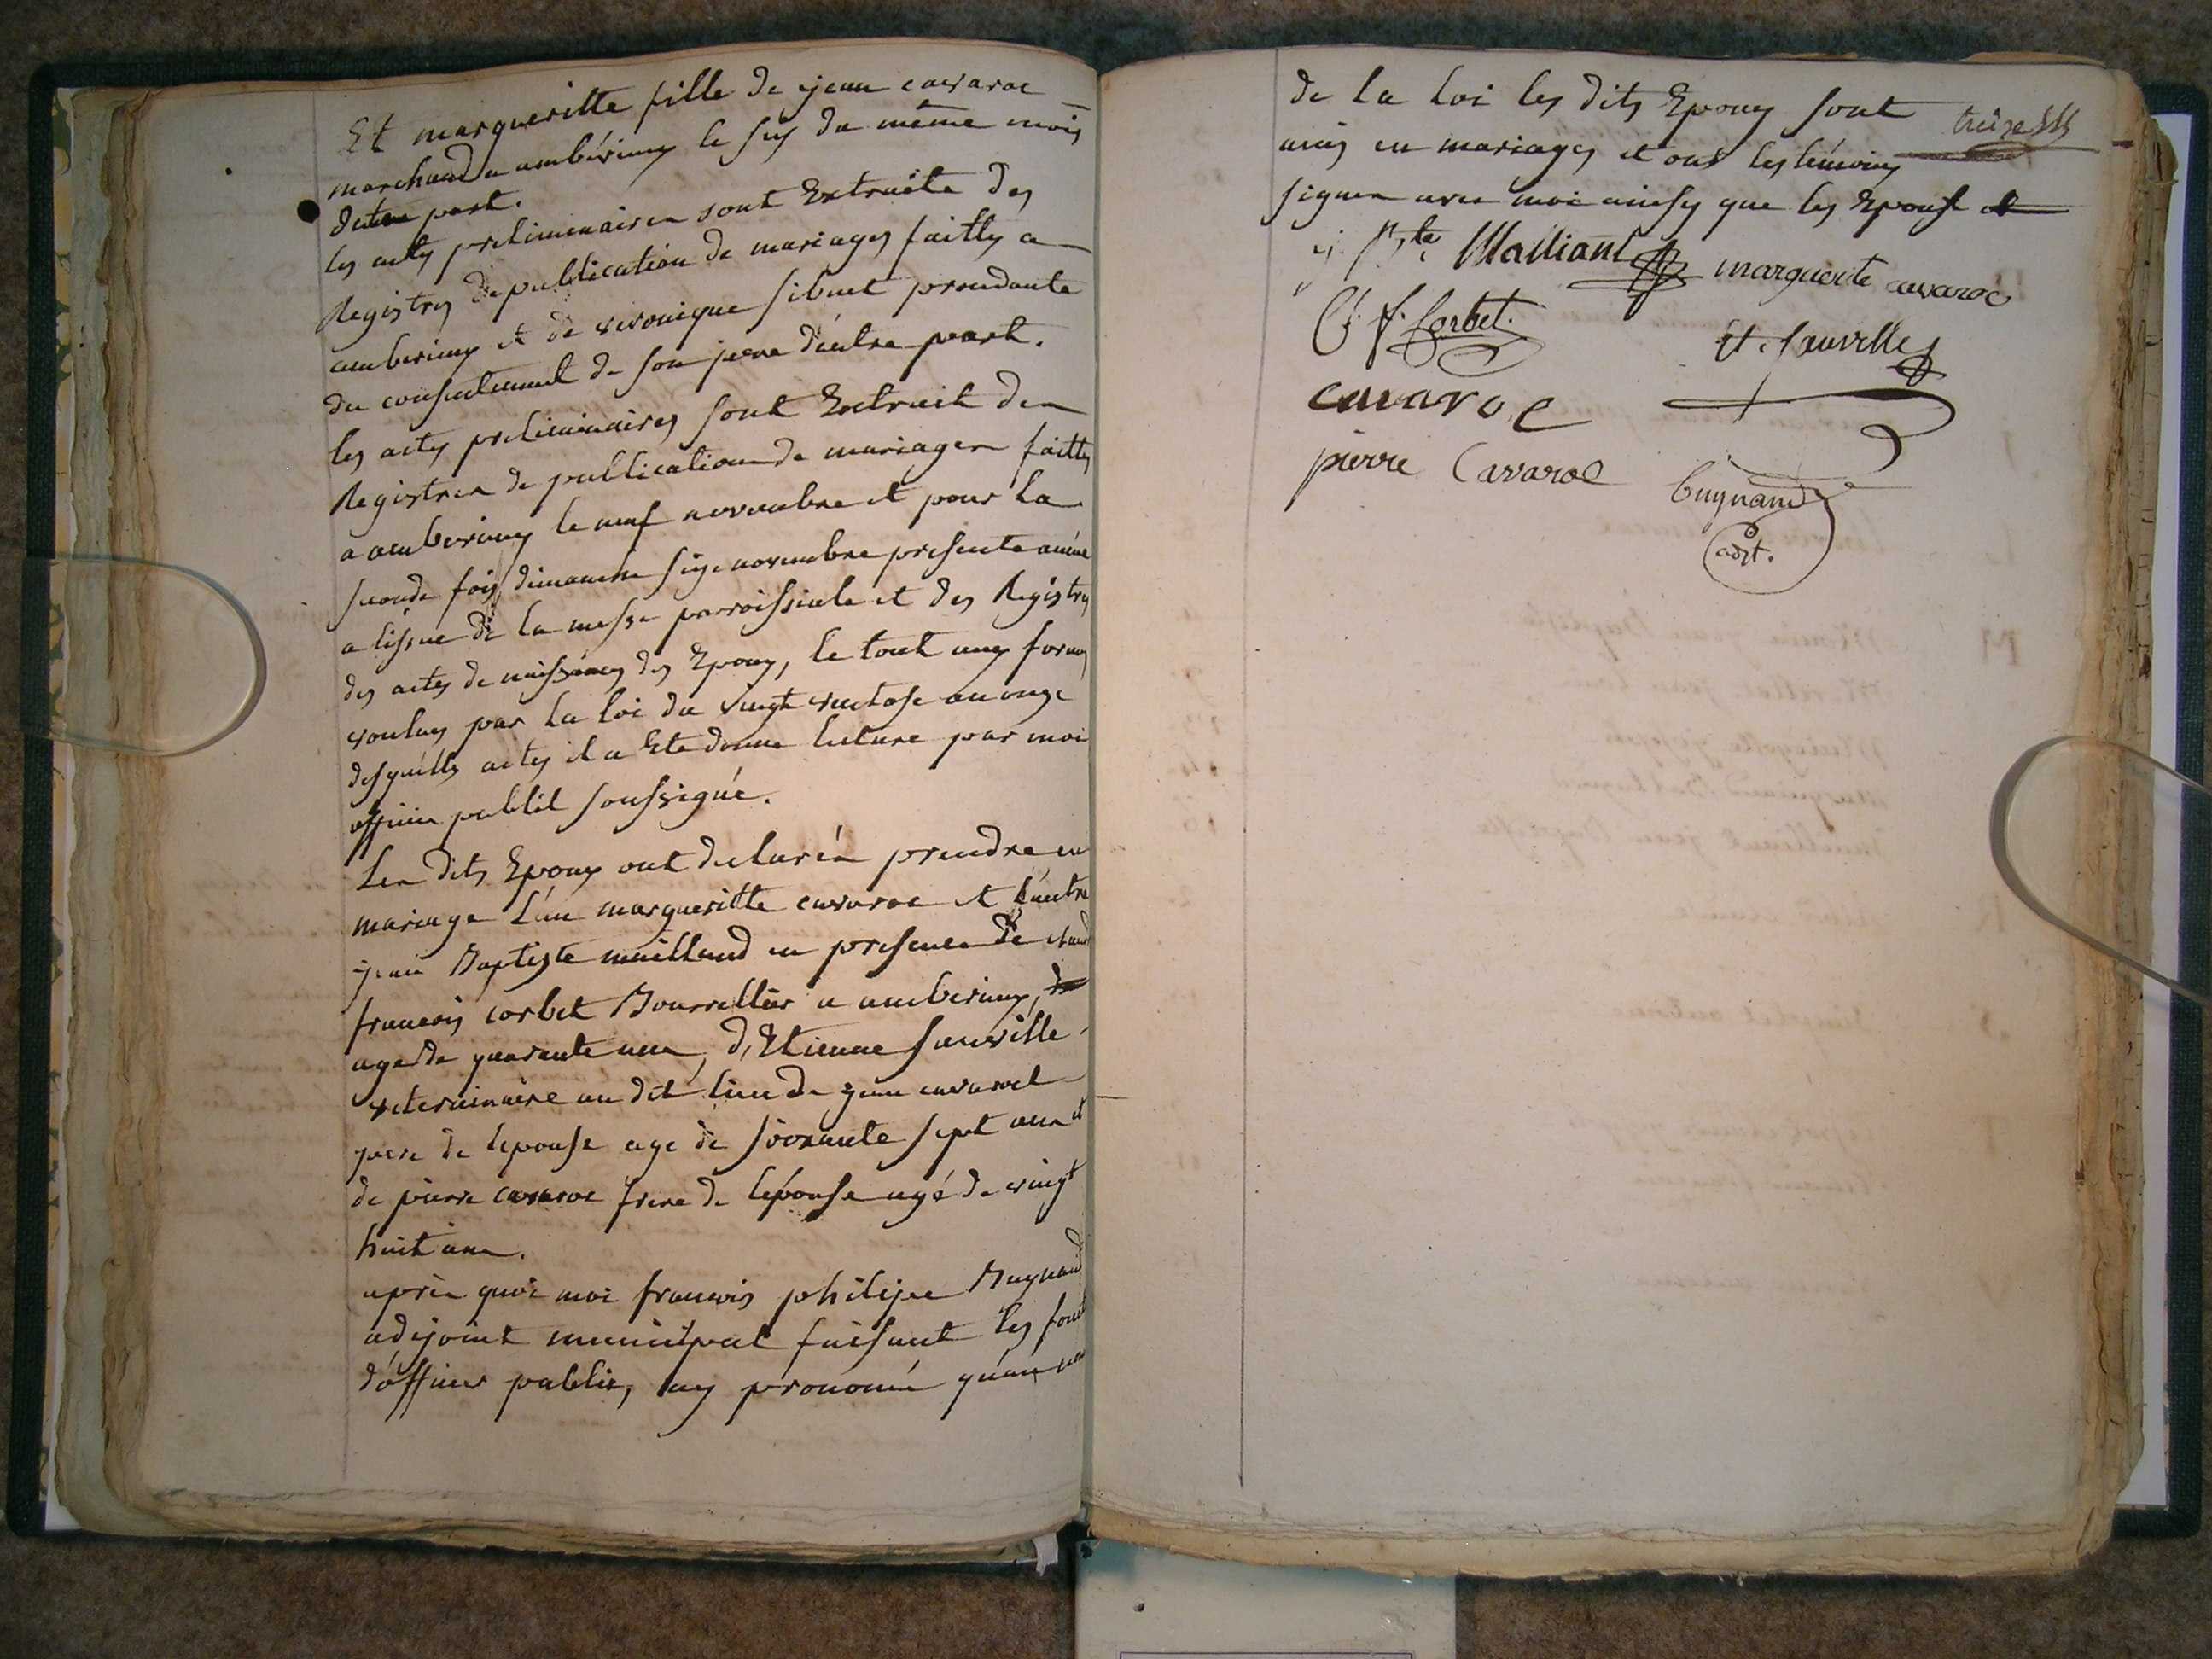 Et margueritte fille de jean cavaroc
marchand a amberieux le six du même mois
dutre part.
les actes preliminairer sont Extraite des
Registres de publication de mariages faittes a
amberieux et de veronique sibuet procedante
du consentement de son pere d'autre part.
les actes preliminaires sont Extrait der
Registrer de publication de mariager faittes
a amberieux le neuf novembre et pour la
seconde fois dimanche seize novembre presente année
a lissue de la messe parroissiale et des Registres
des actes de naissances des Epoux, le tout aux formes
voulues par la loi du vingt ventose an onze
desquells actes il a Ete donne lecture par moi
officier publil soussigné.
Les dits Epoux ont declarér prendre en
mariage L'un margueritte cavaroc et L'autre
jean Baptiste mailland en presence de claud
francois corbet Bourrellier a amberieux,
age de quarante ans, d'Etienne sauville
veterinaire au dit lieu de jean cavarocl
pere de lepouse age de soixante sept ans et
de pierre cavaroc frere de lépouse agé de vingt
huit ans.
après quoi moi francois philipe Buynand
adjoint municipal faisant les fonct
d'officier public, ay prononcé qu'au nom
de la loi les dits Epoux sont
unis en mariages et ont les témoins
signer avec moi ainsy que les Epouse
treize
j. Bte Malliant
marguerite cavaroc
C. f. Corbet.
Et. Sauville
cavaroc
pierre Cavaroc
Buynand
adjt.